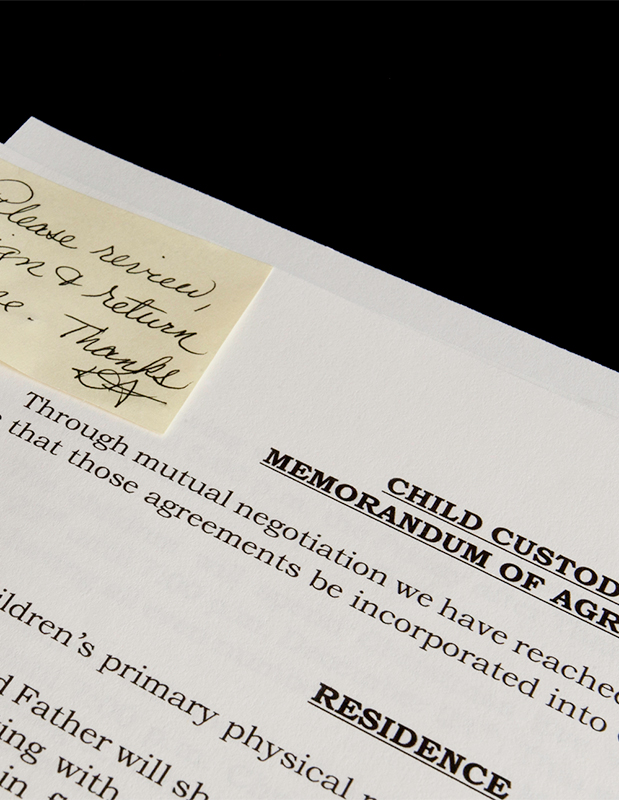 Please review,
ign & return
e. Thanks
CHILD CUSTOD
MEMORANDUM OF AGR
Through mutual negotiation we have reached
that those agreements be incorporated into
RESIDENCE
ildren's primary physical
d Father will sh
ing with
in